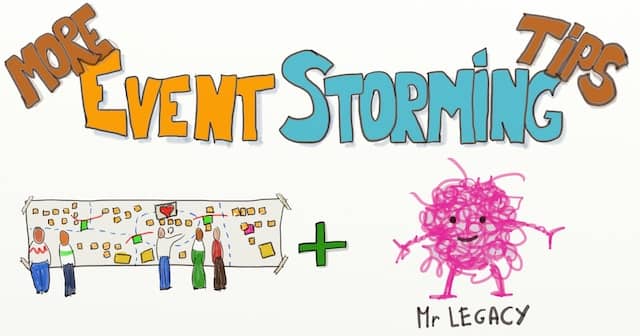 MORE
EVENT STORMING
TIPS
Mr LEGACY